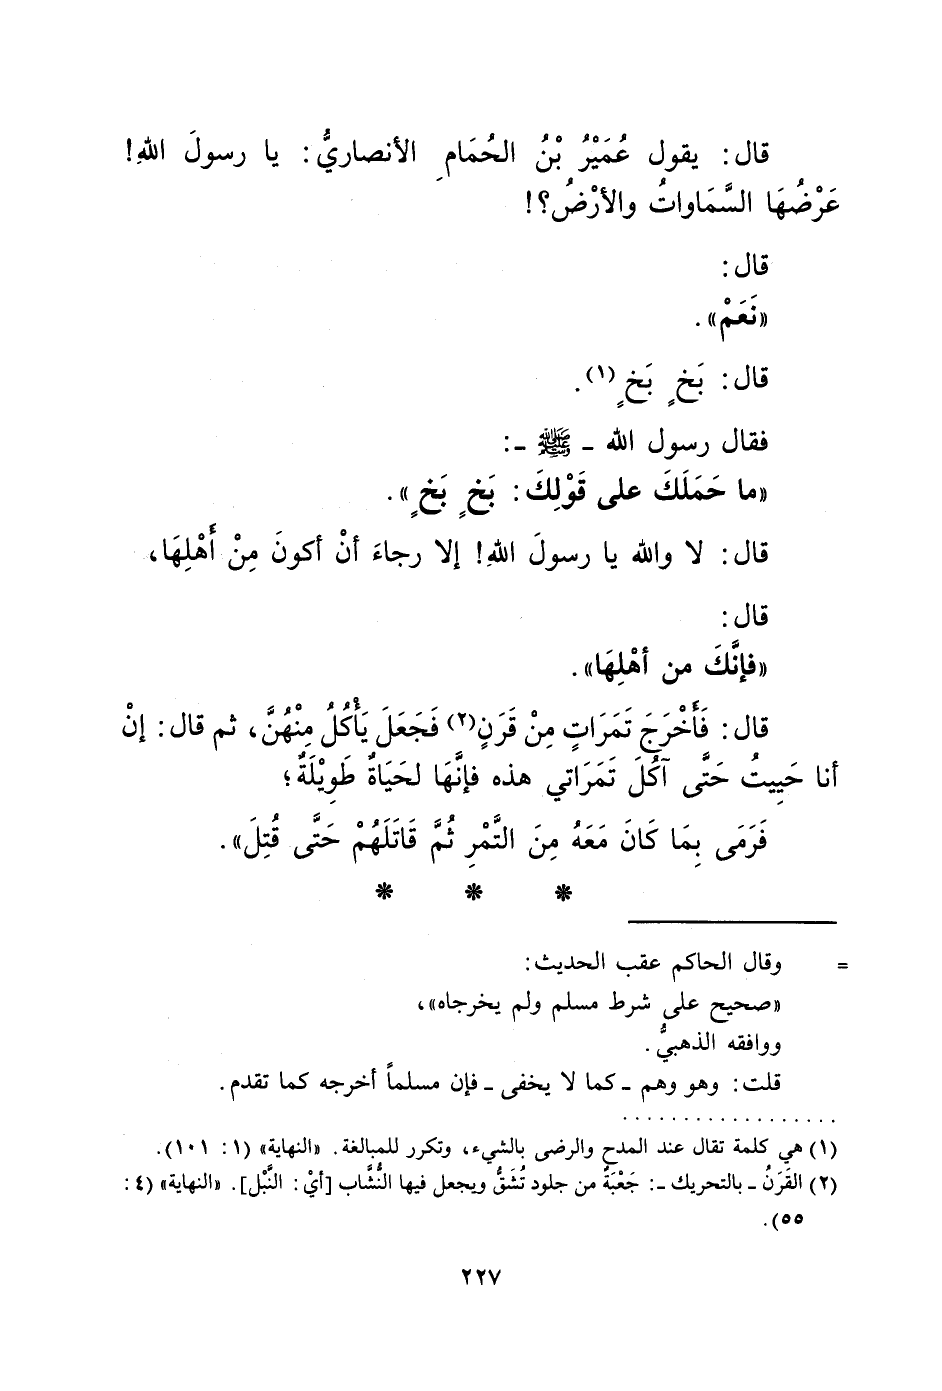 قال: يقول عُمَيْرُ بْنُ الحُمَامِ الأنصاريُّ: يا رسولَ اللهِ!
عَرْضُهَا السَّمَاواتُ والأرْضُ؟!
قال:
«نَعَمْ».
قال: بَخٍ بَخٍ(١).
فقال رسول الله ـ ﷺ ـ:
«ما حَمَلَكَ على قَوْلِكَ: بَخٍ بَخٍ».
قال: لا والله يا رسولَ اللهِ! إلا رجاءَ أنْ أكونَ مِنْ أَهْلِهَا،
قال:
«فإنَّكَ من أهْلِهَا».
قال: فَأَخْرَجَ تَمَرَاتٍ مِنْ قَرَنٍ(٢) فَجَعَلَ يَأْكُلُ مِنْهُنَّ، ثم قال: إنْ
أنا حَيِيتُ حَتَّى آكُلَ تَمَرَاتي هذه فإنَّهَا لحَيَاةٌ طَوِيْلَةٌ؛
فَرَمَى بِمَا كَانَ مَعَهُ مِنَ التَّمْرِ ثُمَّ قَاتَلَهُمْ حَتَّى قُتِلَ».
* * *
= وقال الحاكم عقب الحديث:
«صحيح على شرط مسلم ولم يخرجاه»،
ووافقه الذهبيُّ.
قلت: وهو وهم ـ كما لا يخفى ـ فإن مسلماً أخرجه كما تقدم.
. . . . . . . . . . . . . . . . . .
(١) هي كلمة تقال عند المدح والرضى بالشيء، وتكرر للمبالغة. «النهاية» (١: ١٠١).
(٢) القَرَنُ ـ بالتحريك ـ: جَعْبَةٌ من جلود تُشَقُّ ويجعل فيها النُّشَّاب [أيْ: النَّبْل]. «النهاية» (٤:
٥٥).
٢٢٧